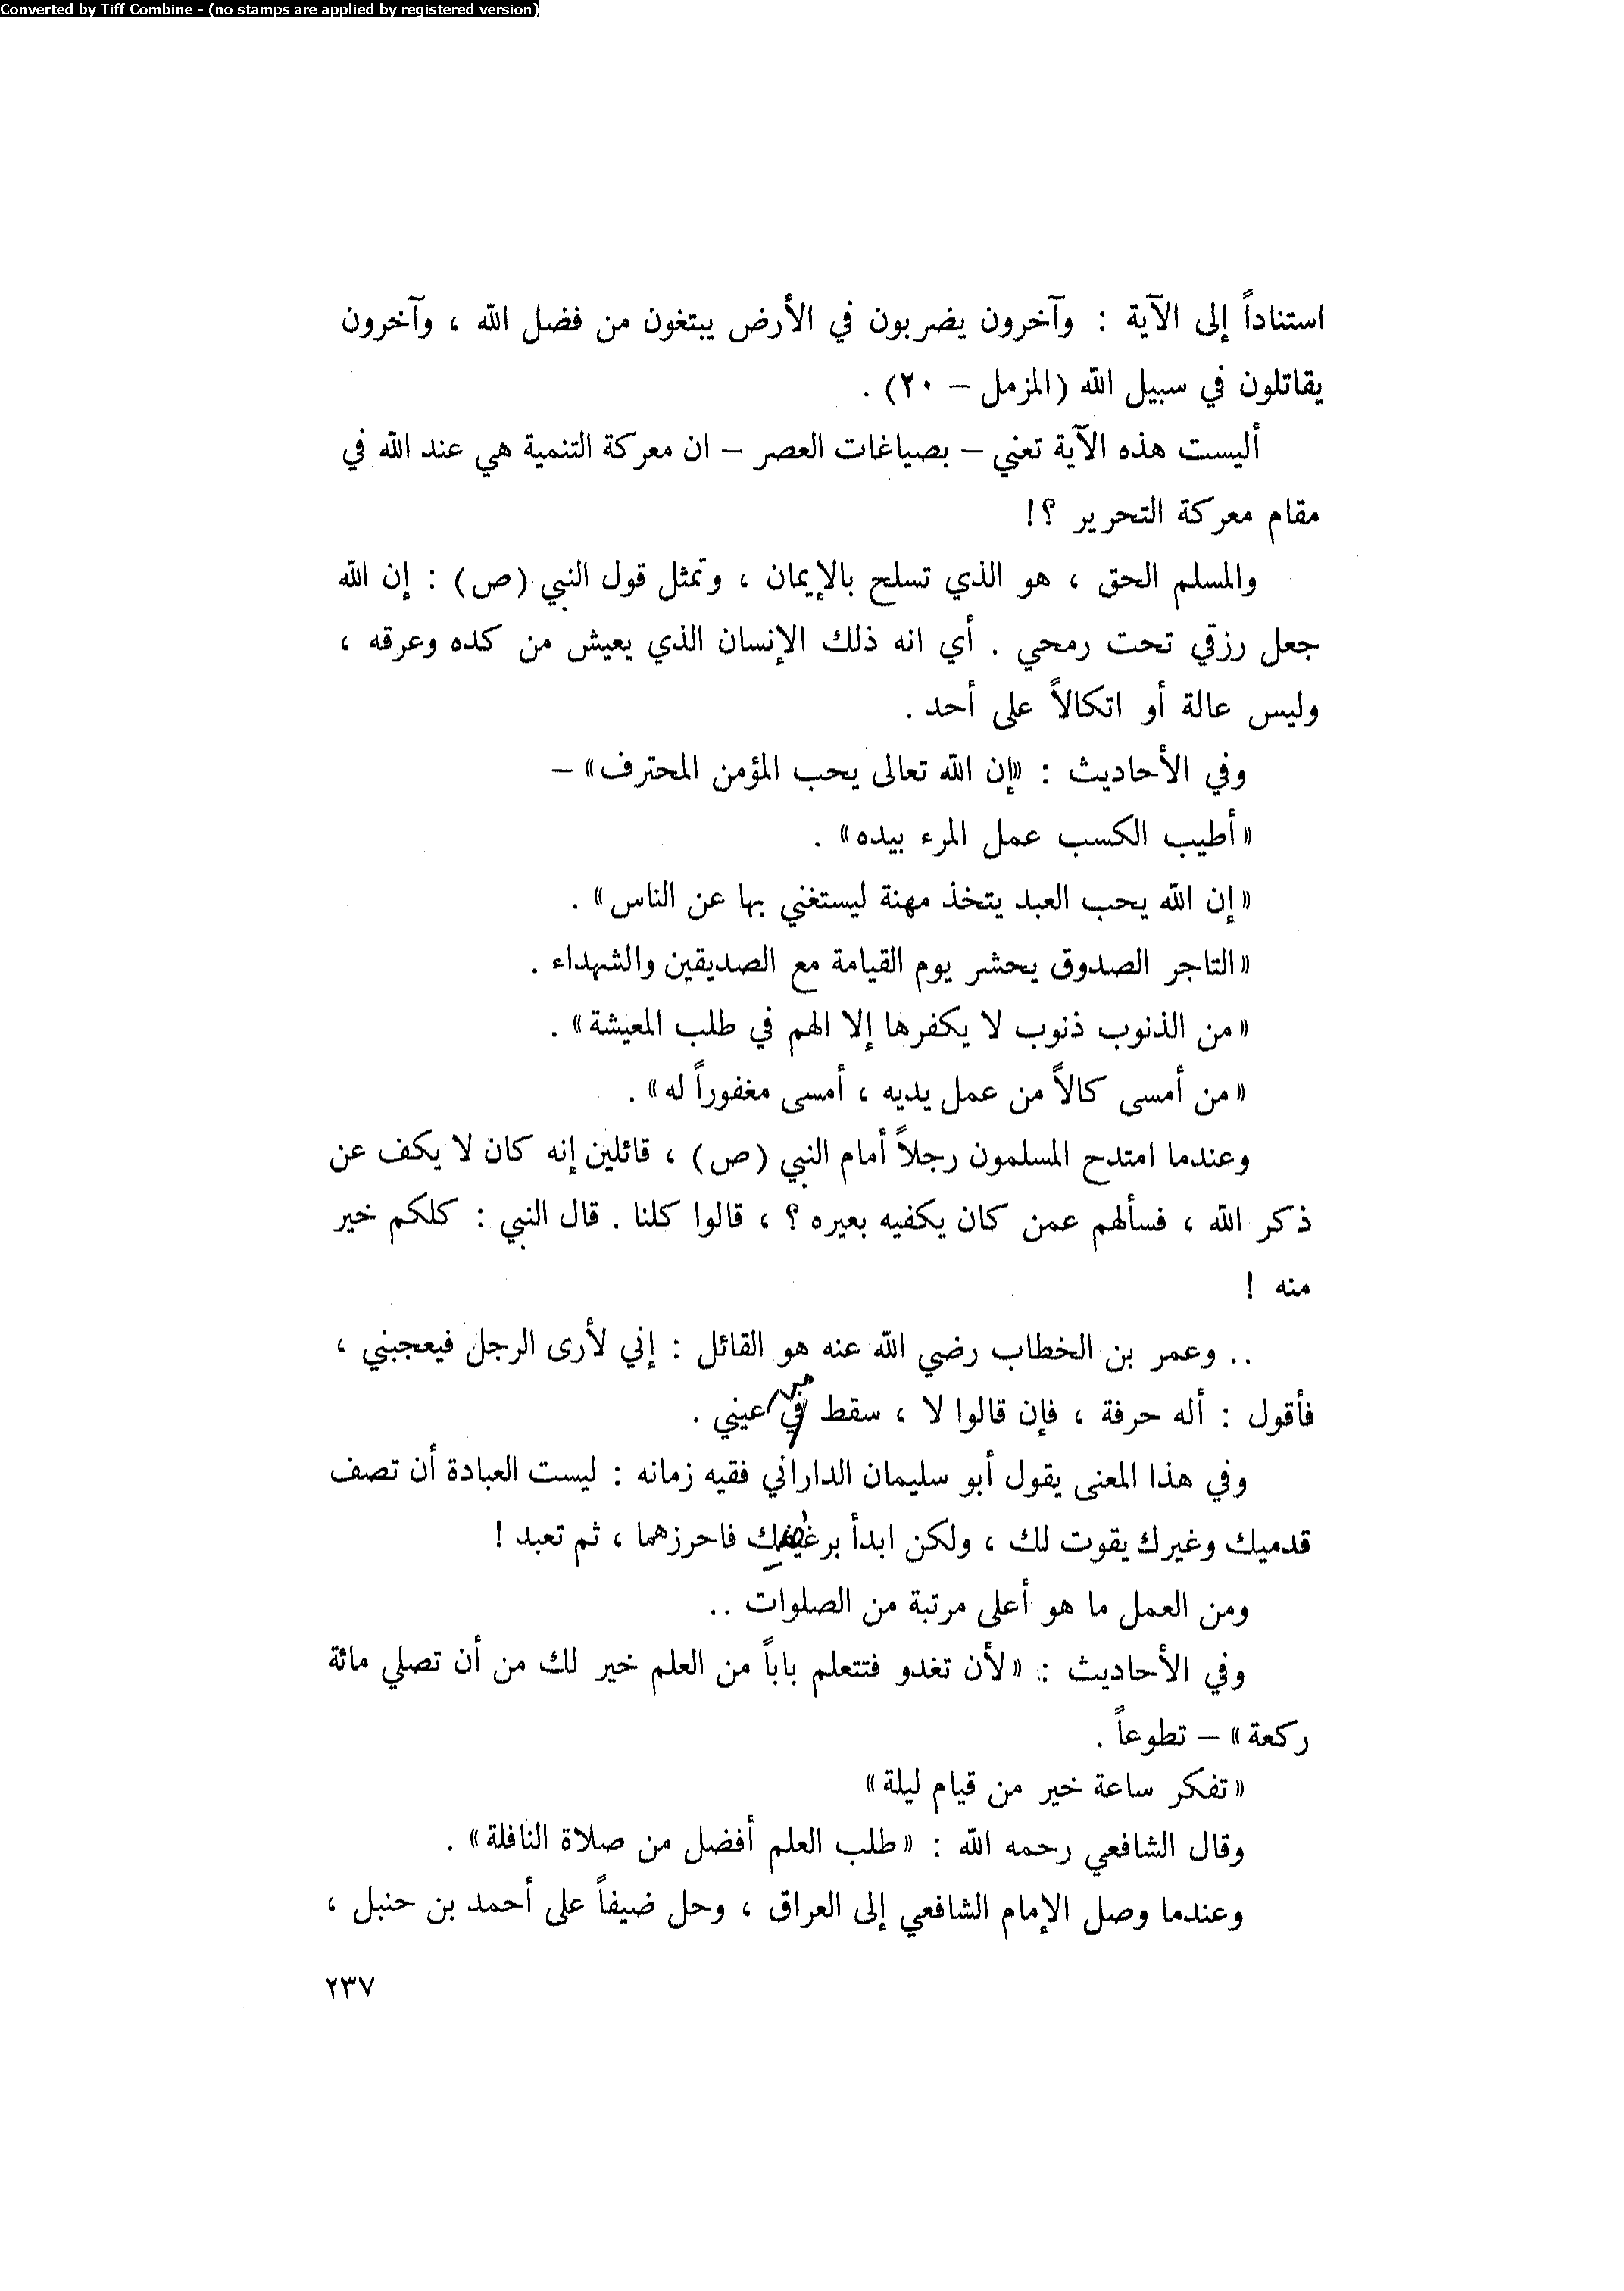 Converted by Tiff Combine - (no stamps are applied by registered version)
استناداً إلى الآية : وآخرون يضربون في الأرض يبتغون من فضل الله ، وآخرون
يقاتلون في سبيل الله (المزمل – ٢٠) .
أليست هذه الآية تعني – بصياغات العصر – ان معركة التنمية هي عند الله في
مقام معركة التحرير ؟!
والمسلم الحق ، هو الذي تسلح بالإيمان ، وتمثل قول النبي (ص) : إن الله
جعل رزقي تحت رمحي . أي انه ذلك الإنسان الذي يعيش من كده وعرقه ،
وليس عالة أو اتكالاً على أحد .
وفي الأحاديث : «إن الله تعالى يحب المؤمن المحترف» –
«أطيب الكسب عمل المرء بيده» .
«إن الله يحب العبد يتخذ مهنة ليستغني بها عن الناس» .
«التاجر الصدوق يحشر يوم القيامة مع الصديقين والشهداء .
«من الذنوب ذنوب لا يكفرها إلا الهم في طلب المعيشة» .
«من أمسى كالاً من عمل يديه ، أمسى مغفوراً له» .
وعندما امتدح المسلمون رجلاً أمام النبي (ص) ، قائلين إنه كان لا يكف عن
ذكر الله ، فسألهم عمن كان يكفيه بعيره ؟ ، قالوا كلنا . قال النبي : كلكم خير
منه !
.. وعمر بن الخطاب رضي الله عنه هو القائل : إني لأرى الرجل فيعجبني ،
فأقول : أله حرفة ، فإن قالوا لا ، سقط في من عيني .
وفي هذا المعنى يقول أبو سليمان الداراني فقيه زمانه : ليست العبادة أن تصف
قدميك وغيرك يقوت لك ، ولكن ابدأ فاحرزهما ، ثم تعبد !
ومن العمل ما هو أعلى مرتبة من الصلوات ..
وفي الأحاديث : «لأن تغدو فتتعلم باباً من العلم خير لك من أن تصلي مائة
ركعة» – تطوعاً .
«تفكر ساعة خير من قيام ليلة»
وقال الشافعي رحمه الله : «طلب العلم أفضل من صلاة النافلة» .
وعندما وصل الإمام الشافعي إلى العراق ، وحل ضيفاً على أحمد بن حنبل ،
٢٣٧